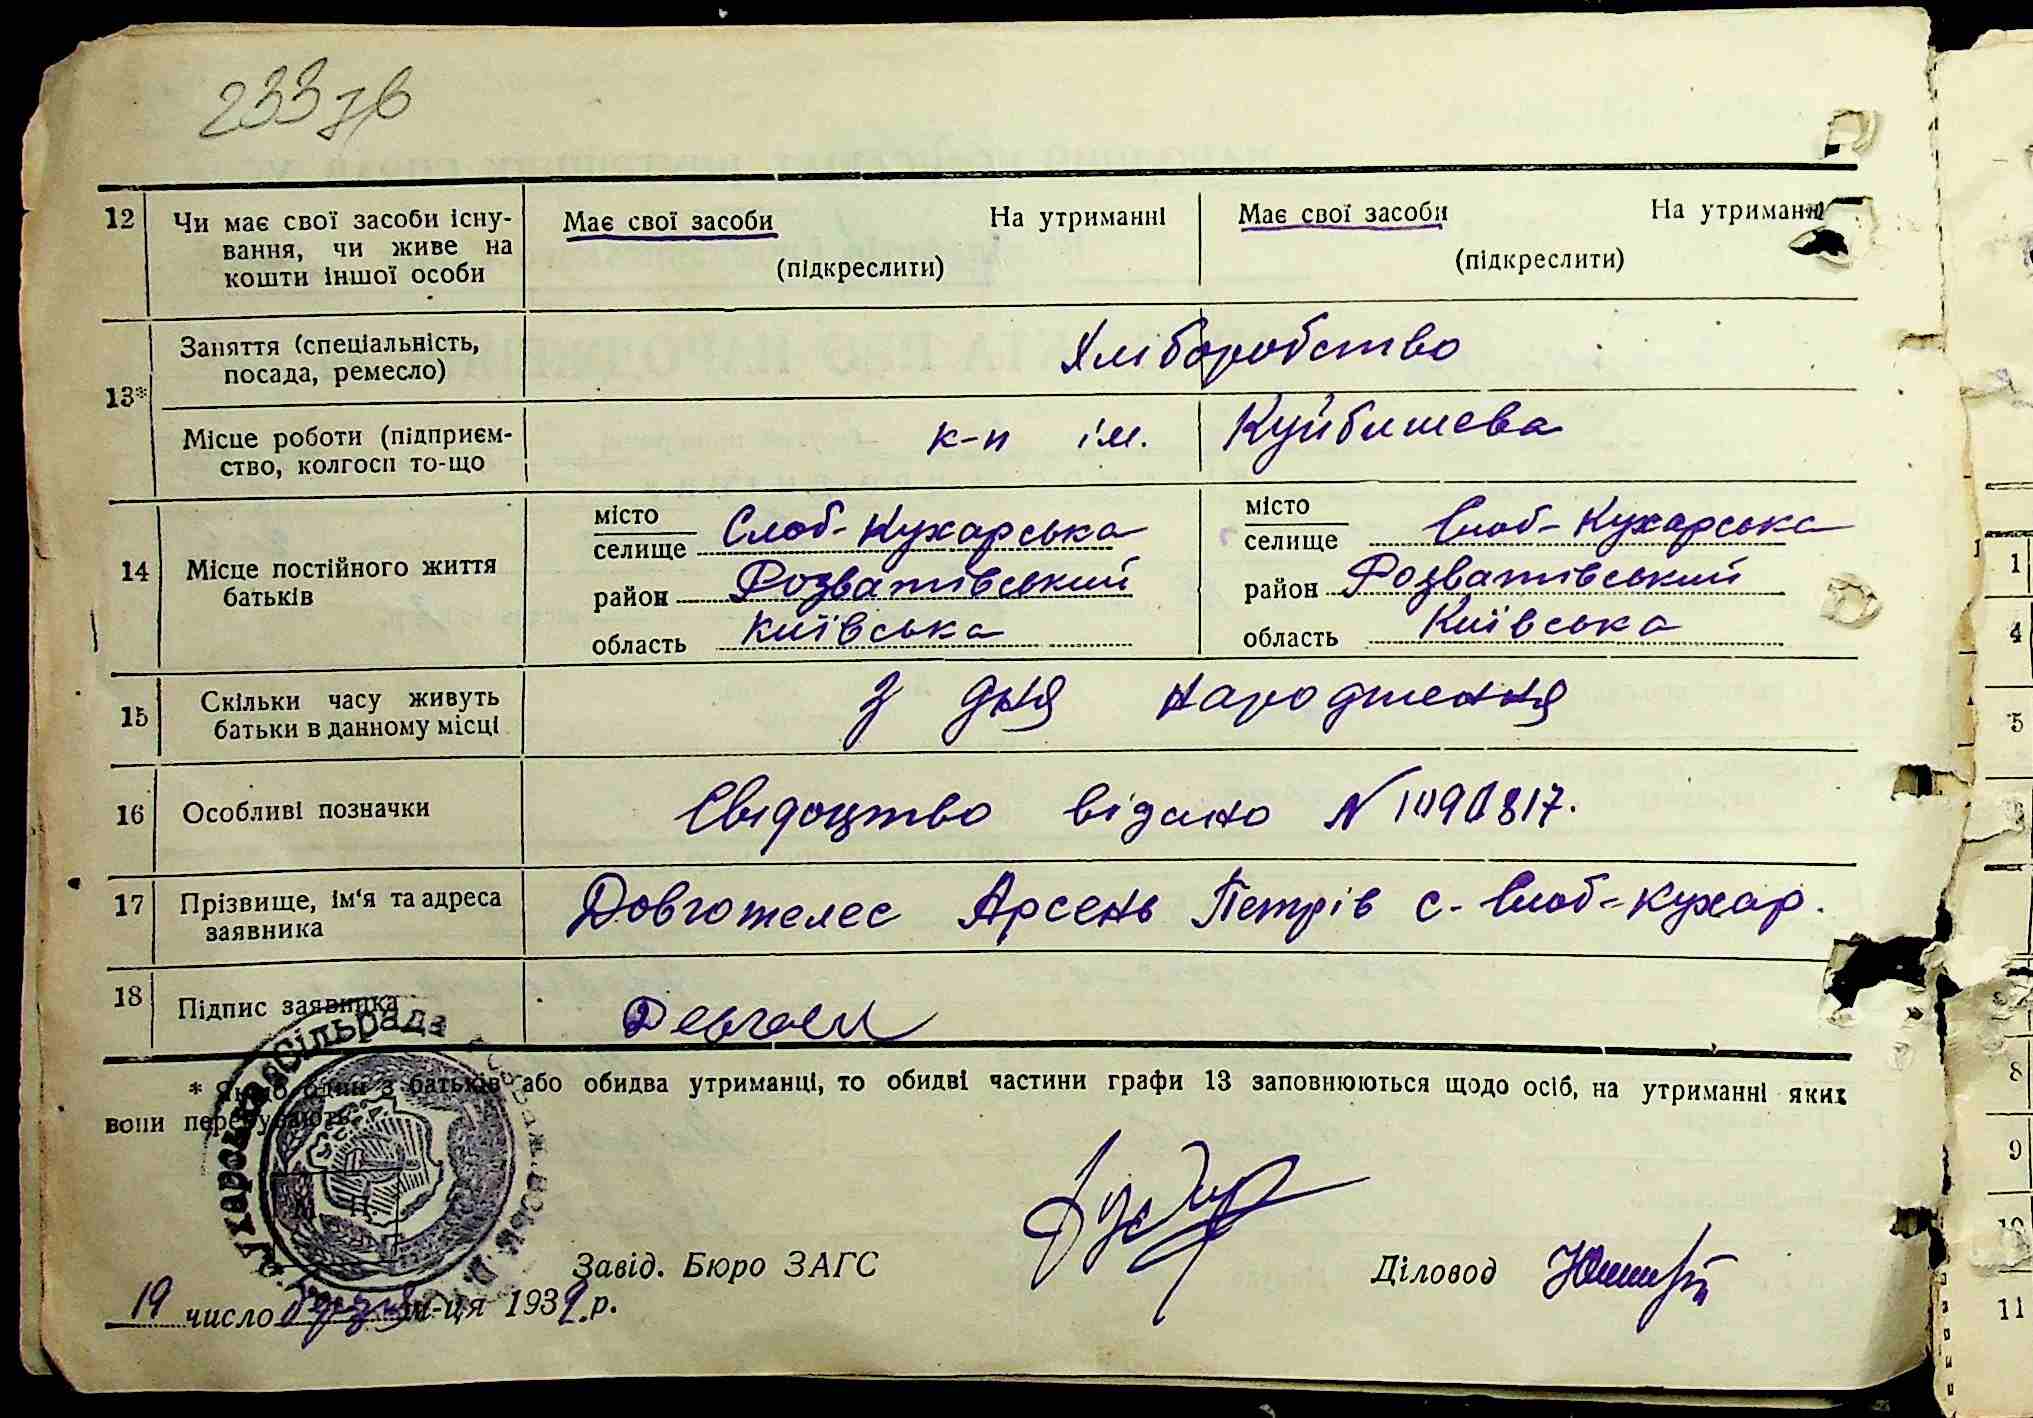 233 зв
12 Чи має свої засоби існу-
вання, чи живе на
кошти іншої особи
Має свої засоби На утриманні
(підкреслити)
Має свої засоби На утриманні
(підкреслити)
13*
Заняття (спеціальність,
посада, ремесло)
Хліборобство
Місце роботи (підприєм-
ство, колгосп то-що
к-п ім. Куйбишева
14 Місце постійного життя
батьків
місто
селище Слоб-Кухарська
район Розватівський
область Київська
місто
селище Слоб-Кухарська
район Розватівський
область Київська
15 Скільки часу живуть
батьки в данному місці
З дня народження
16 Особливі позначки
Свідоцтво відано N
17 Прізвище, ім'я та адреса
заявника
Довготелес Арсень Петрів с. Слоб-Кухар.
18 Підпис заявника
* Якщо один з батьків або обидва утриманці, то обидві частини графи 13 заповнюються щодо осіб, на утриманні яких
вони перебувають.
Кухарська Сільрада
М. П.
Завід. Бюро ЗАГС
Діловод
19 число м-ця 1939 р.
1
4
5
8
9
10
11